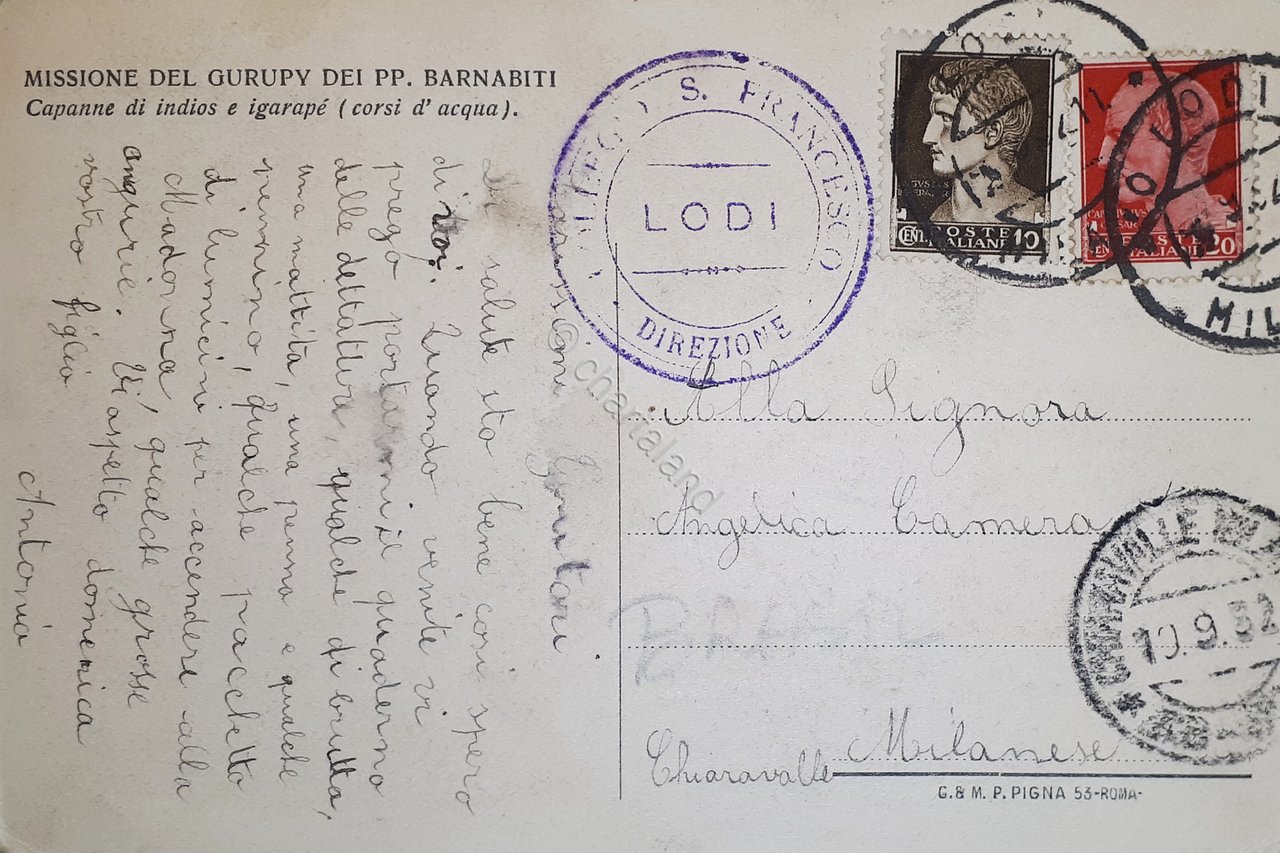 MISSIONE DEL GURUPY DEI PP. BARNABITI
Capanne di indios e igarapé (corsi d'acqua).
COLLEGIO S. FRANCESCO
LODI
DIREZIONE
POSTE
CENT. ITALIANE 10
CENT. ITALIANE 20
LODI
MIL
Carissimi Genitori
Di salute sto bene così spero
di voi. Quando venite vi
prego portarmi il quaderno
delle dettature, qualche di brutta,
una mattita, una penna e qualche
pennino, qualche pacchetto
di lumicini per accendere alla
Madonna, qualche grosse
angurie. Vi aspetto domenica
vostro figlio
Antonio
Alla Signora
Angelica Camera
Chiaravalle Milanese
CHIARAVALLE MIL
10.9.32
G. & M. P. PIGNA 53-ROMA-
© chartaland